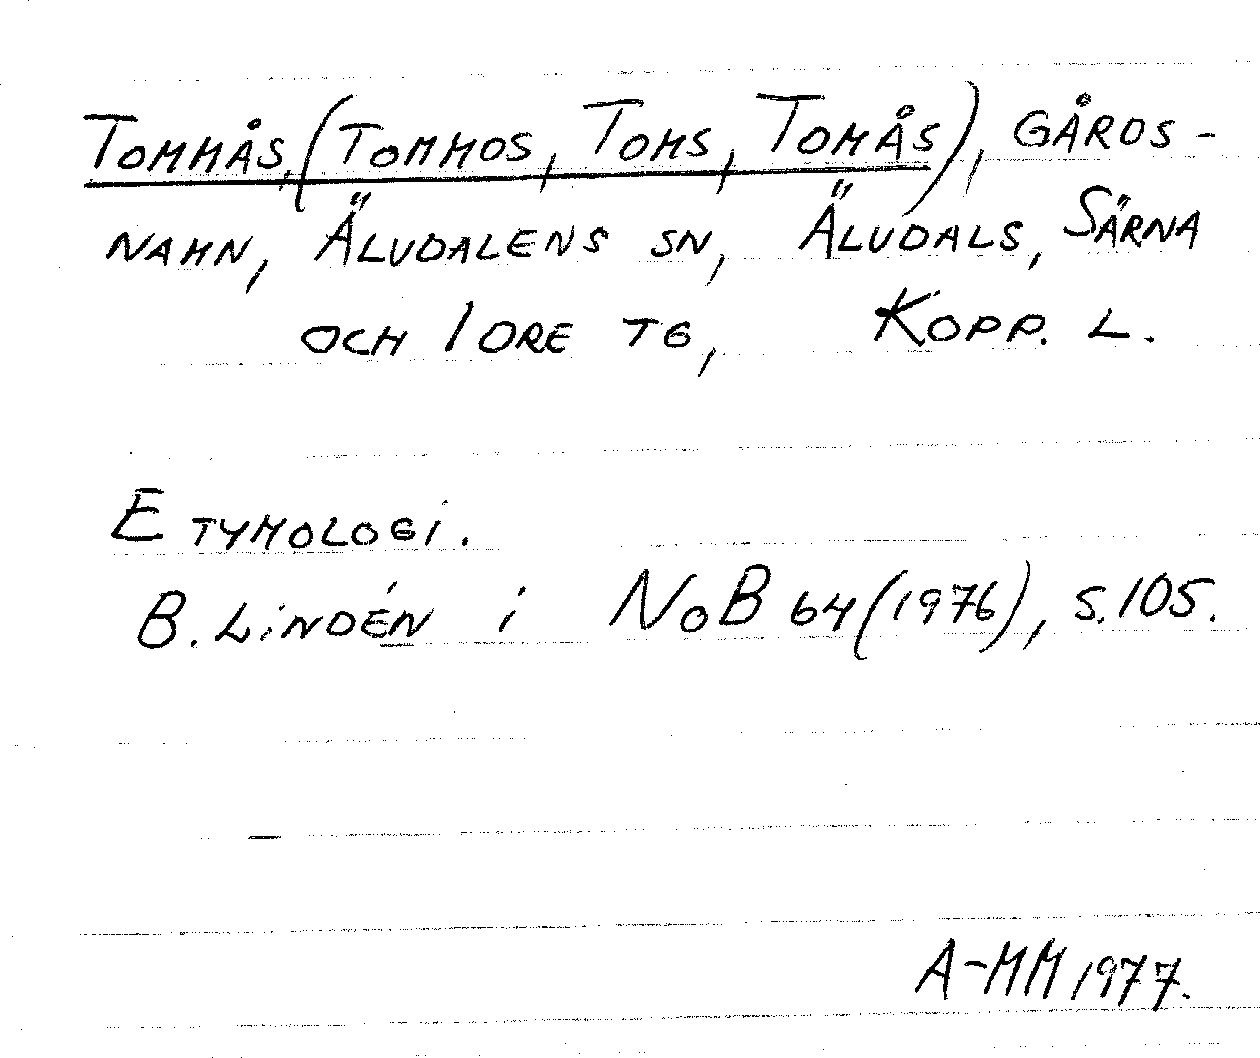 TOMMÅS, (TOMMOS, TOMS, TOMÅS), GÅRDS-
NAMN, ÄLVDALENS SN, ÄLVDALS, SÄRNA
OCH IDRE TG, KOPP. L.
ETYMOLOGI.
B. LINDÉN i NoB 64 (1976), S. 105.
A-MM 1977.